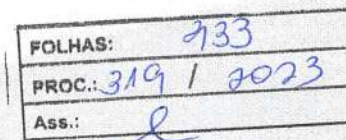 FOLHAS:
PROC.: 319 / 2023
Ass.: